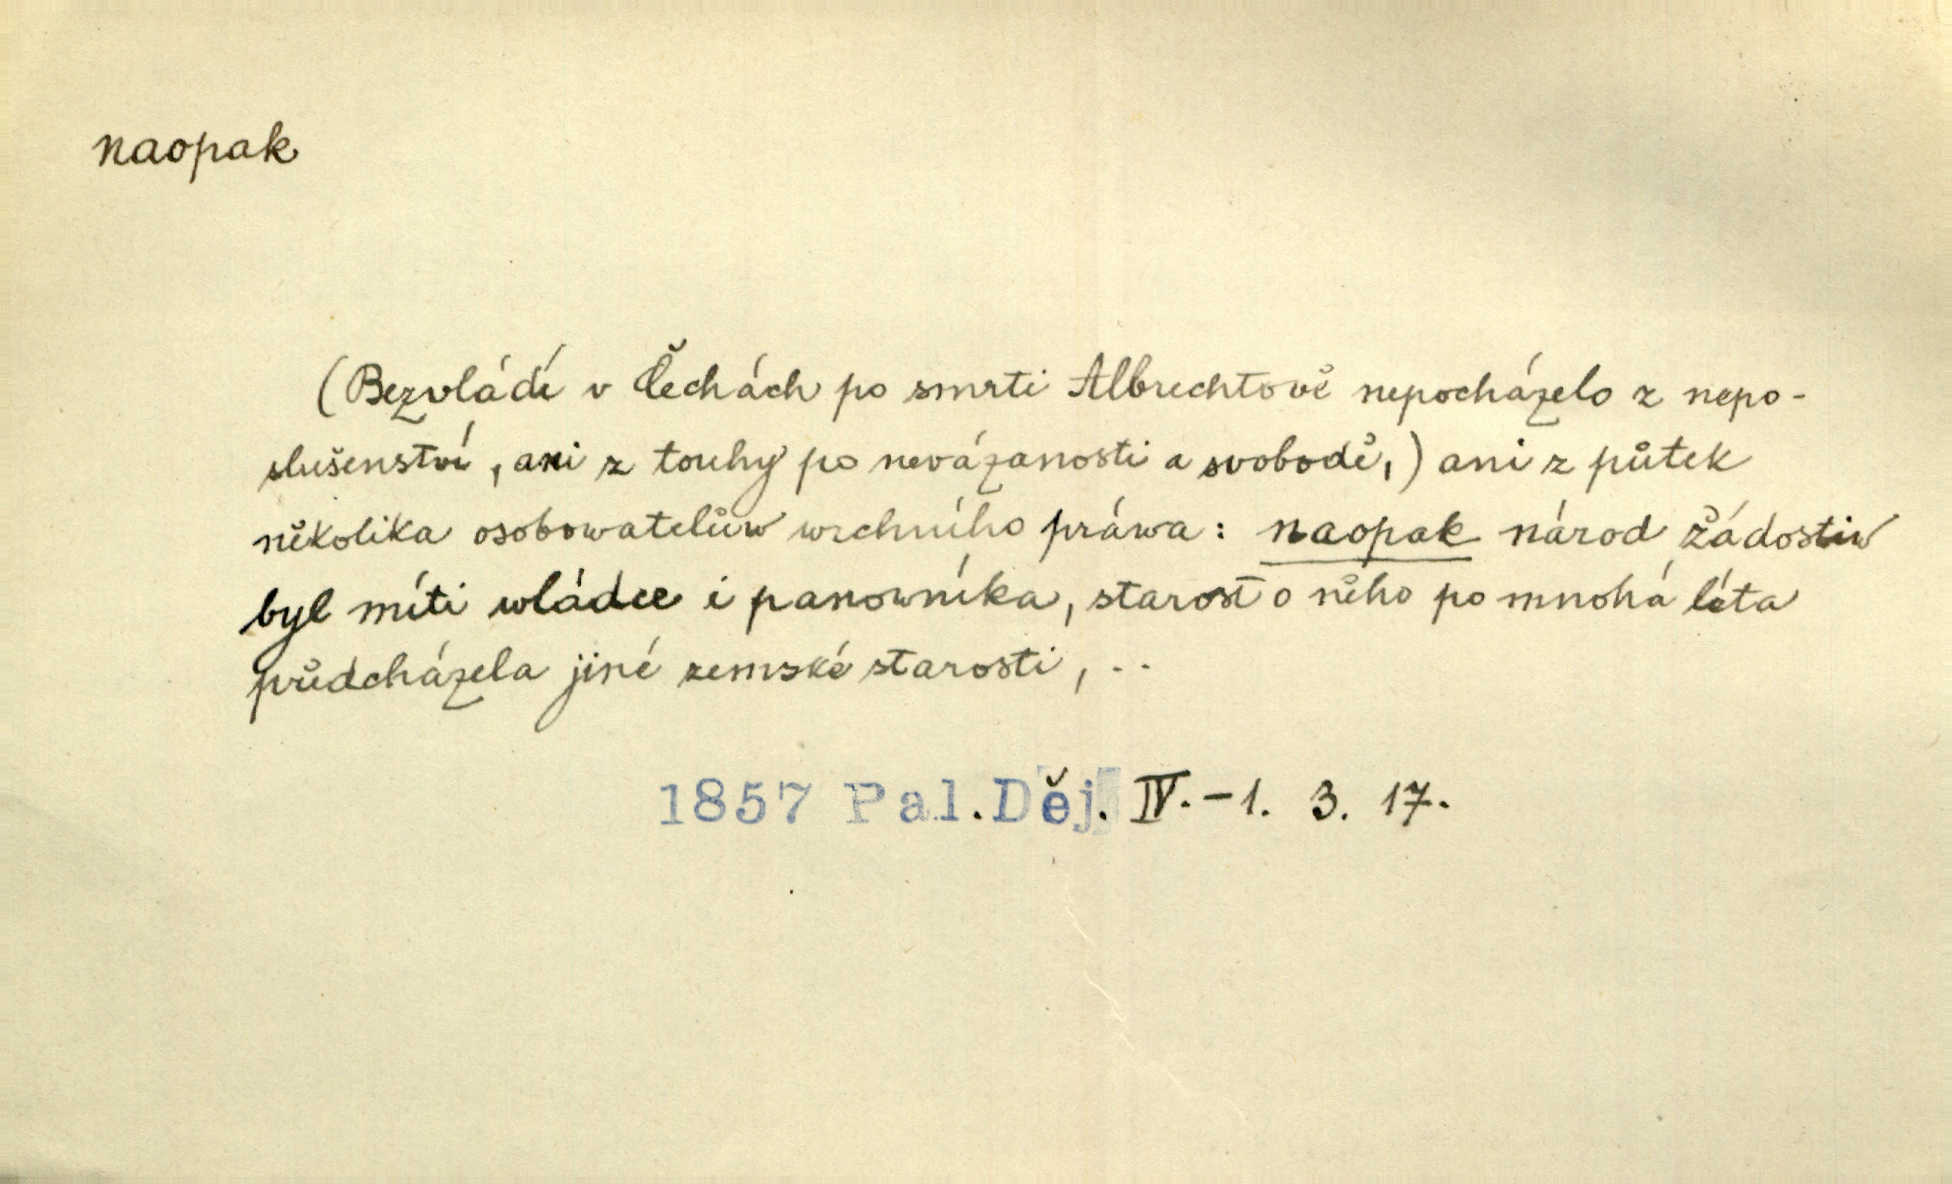 naopak
(Bezvládí v Čechách po smrti Albrechtově nepocházelo z nepo-
slušenství, ani z touhy po nevázanosti a svobodě,) ani z půtek
několika osobowatelůw wrchního práwa: naopak národ žádostiw
byl míti wládce i panowníka, starost o něho po mnohá léta
předcházela jiné zemské starosti, ..
1857 Pal. Děj. IV.-1. 3. 17.